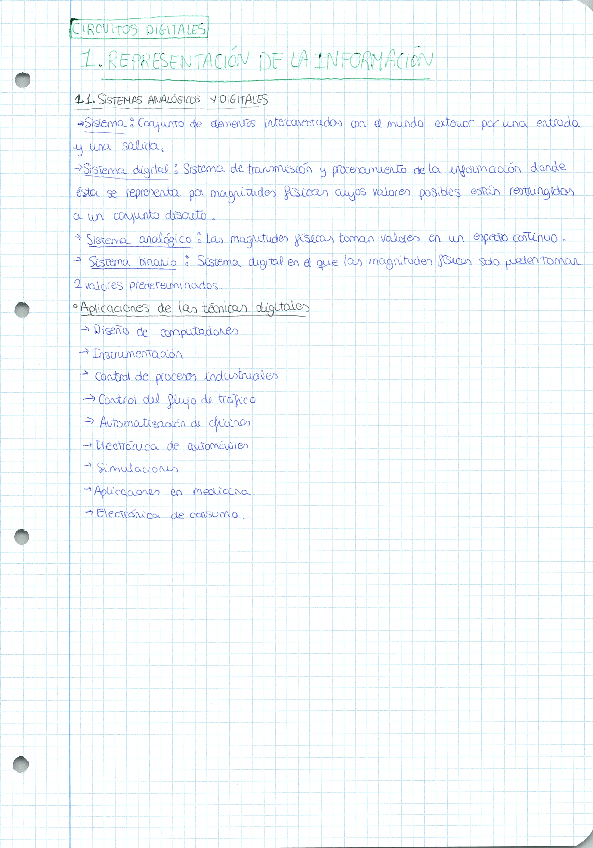 CIRCUITOS DIGITALES
1. REPRESENTACIÓN DE LA INFORMACIÓN
1.1. SISTEMAS ANALÓGICOS Y DIGITALES
→ Sistema: Conjunto de elementos interconectados con el mundo exterior por una entrada
y una salida.
→ Sistema digital: Sistema de transmisión y procesamiento de la información donde
ésta se representa por magnitudes físicas cuyos valores posibles están restringidos
a un conjunto discreto.
→ Sistema analógico: Las magnitudes físicas toman valores en un espacio continuo.
→ Sistema binario: Sistema digital en el que las magnitudes físicas solo pueden tomar
2 valores predeterminados.
• Aplicaciones de las técnicas digitales
→ Diseño de computadores
→ Instrumentación
→ Control de procesos industriales
→ Control del flujo de tráfico
→ Automatización de oficinas
→ Electrónica de automóviles
→ Simulaciones
→ Aplicaciones en medicina
→ Electrónica de consumo.